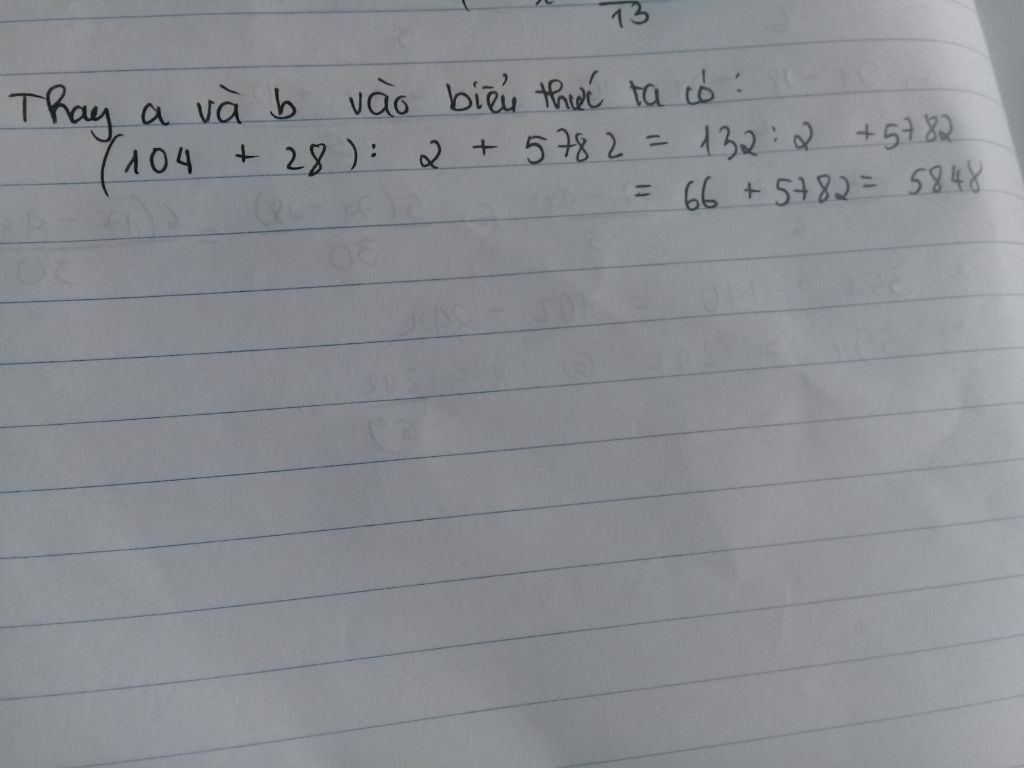 13
Thay a và b vào biểu thức ta có:
(104 + 28): 2 + 5782 = 132:2 +5782
= 66 + 5782 = 5848